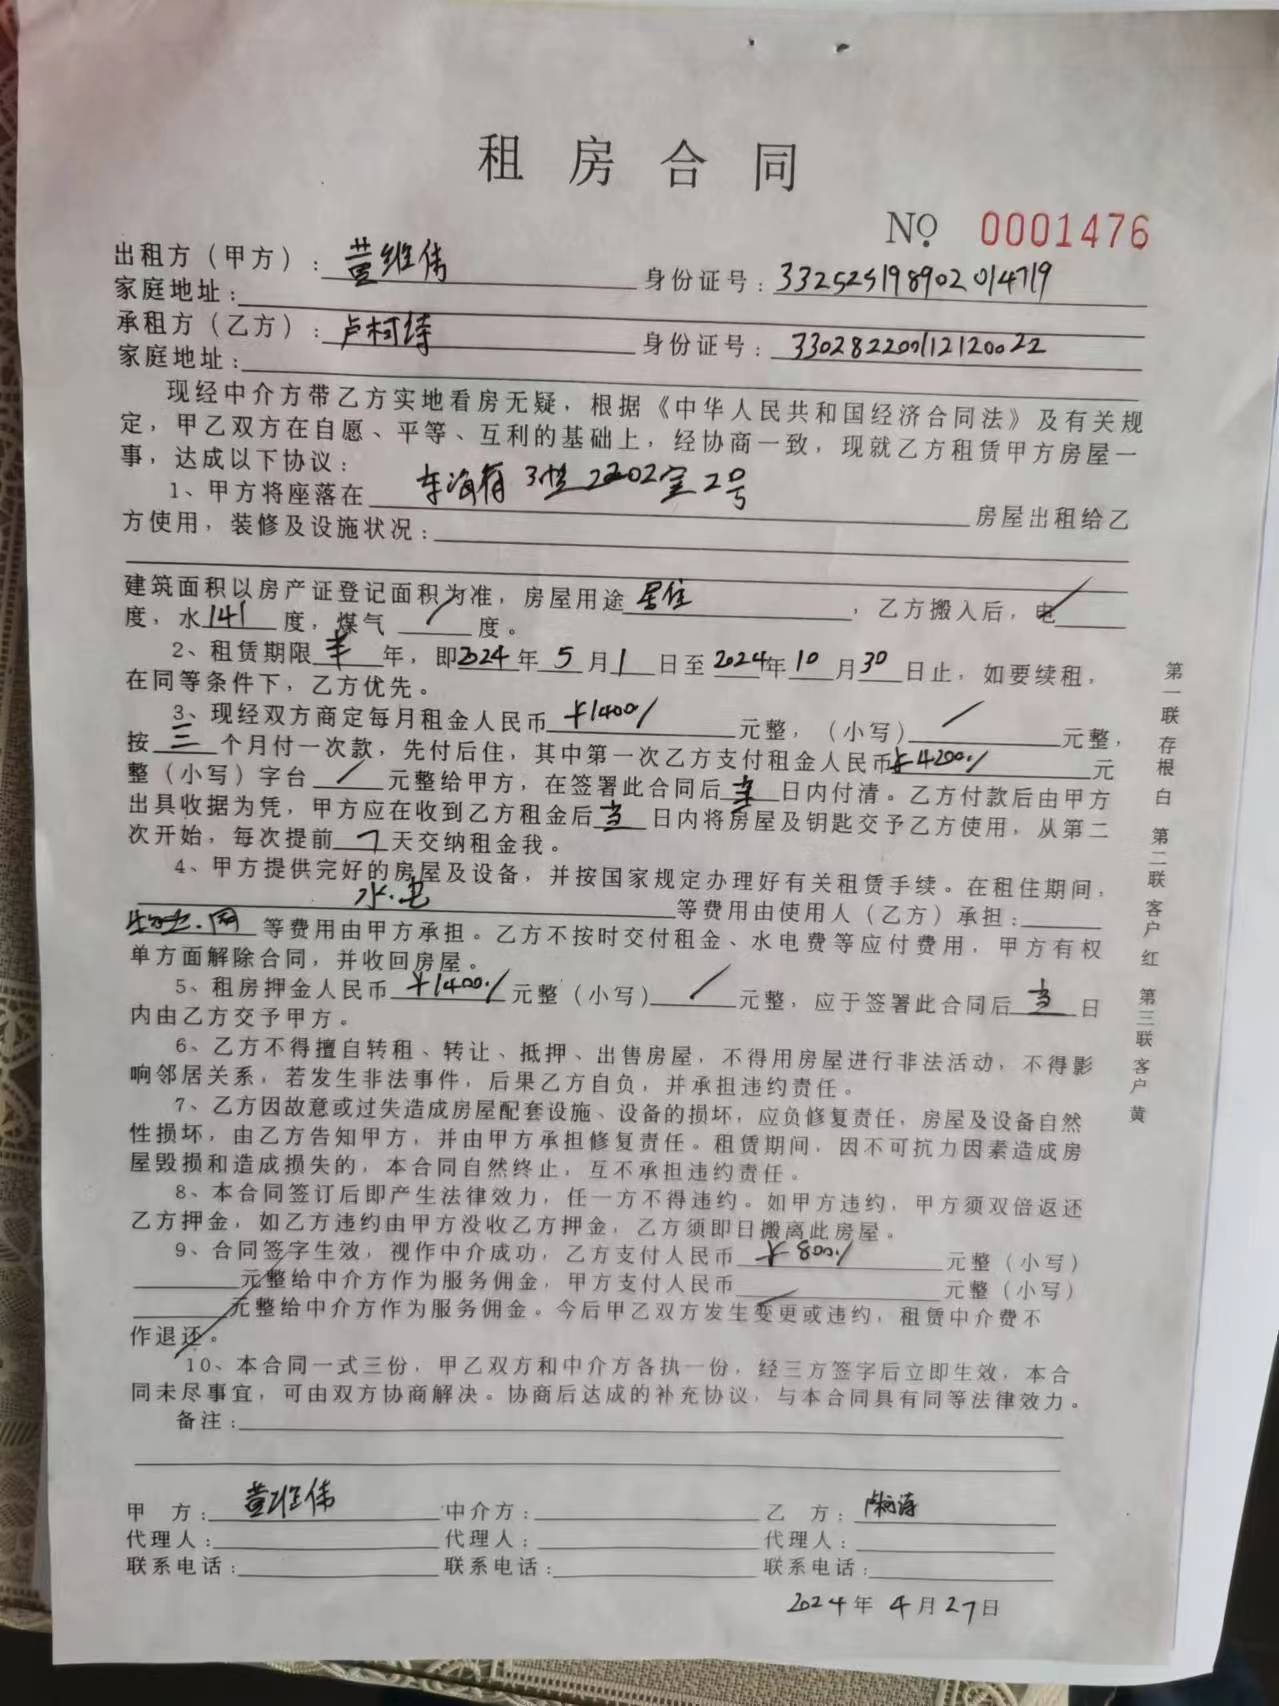 租房合同
NO. 0001476
出租方（甲方）：董维伟 身份证号：332525198902014719
家庭地址：
承租方（乙方）：卢柯诗 身份证号：330282200112120022
家庭地址：
现经中介方带乙方实地看房无疑，根据《中华人民共和国经济合同法》及有关规
定，甲乙双方在自愿、平等、互利的基础上，经协商一致，现就乙方租赁甲方房屋一
事，达成以下协议：
1、甲方将座落在 东海府3幢2202室2号 房屋出租给乙
方使用，装修及设施状况：
建筑面积以房产证登记面积为准，房屋用途 居住 ，乙方搬入后，电 /
度，水 141 度，煤气 / 度。
2、租赁期限 半 年，即2024年5月1日至2024年10月30日止，如要续租，
在同等条件下，乙方优先。
3、现经双方商定每月租金人民币 ¥1400/ 元整，（小写） / 元整，
按 三 个月付一次款，先付后住，其中第一次乙方支付租金人民币 ¥4200./ 元
整（小写）字台 / 元整给甲方，在签署此合同后 当 日内付清。乙方付款后由甲方
出具收据为凭，甲方应在收到乙方租金后 当 日内将房屋及钥匙交予乙方使用，从第二
次开始，每次提前 7 天交纳租金我。
4、甲方提供完好的房屋及设备，并按国家规定办理好有关租赁手续。在租住期间，
水.电 等费用由使用人（乙方）承担：
物业.网 等费用由甲方承担。乙方不按时交付租金、水电费等应付费用，甲方有权
单方面解除合同，并收回房屋。
5、租房押金人民币 ¥1400./ 元整（小写） / 元整，应于签署此合同后 当 日
内由乙方交予甲方。
6、乙方不得擅自转租、转让、抵押、出售房屋，不得用房屋进行非法活动，不得影
响邻居关系，若发生非法事件，后果乙方自负，并承担违约责任。
7、乙方因故意或过失造成房屋配套设施、设备的损坏，应负修复责任，房屋及设备自然
性损坏，由乙方告知甲方，并由甲方承担修复责任。租赁期间，因不可抗力因素造成房
屋毁损和造成损失的，本合同自然终止，互不承担违约责任。
8、本合同签订后即产生法律效力，任一方不得违约。如甲方违约，甲方须双倍返还
乙方押金，如乙方违约由甲方没收乙方押金，乙方须即日搬离此房屋。
9、合同签字生效，视作中介成功，乙方支付人民币 ¥800./ 元整（小写）
元整给中介方作为服务佣金，甲方支付人民币 元整（小写）
元整给中介方作为服务佣金。今后甲乙双方发生变更或违约，租赁中介费不
作退还。
10、本合同一式三份，甲乙双方和中介方各执一份，经三方签字后立即生效，本合
同未尽事宜，可由双方协商解决。协商后达成的补充协议，与本合同具有同等法律效力。
备注：
甲 方：董维伟 中介方： 乙 方：卢柯诗
代理人： 代理人： 代理人：
联系电话： 联系电话： 联系电话：
2024年4月27日
第一联 存根 白 第二联 客户 红 第三联 客户 黄